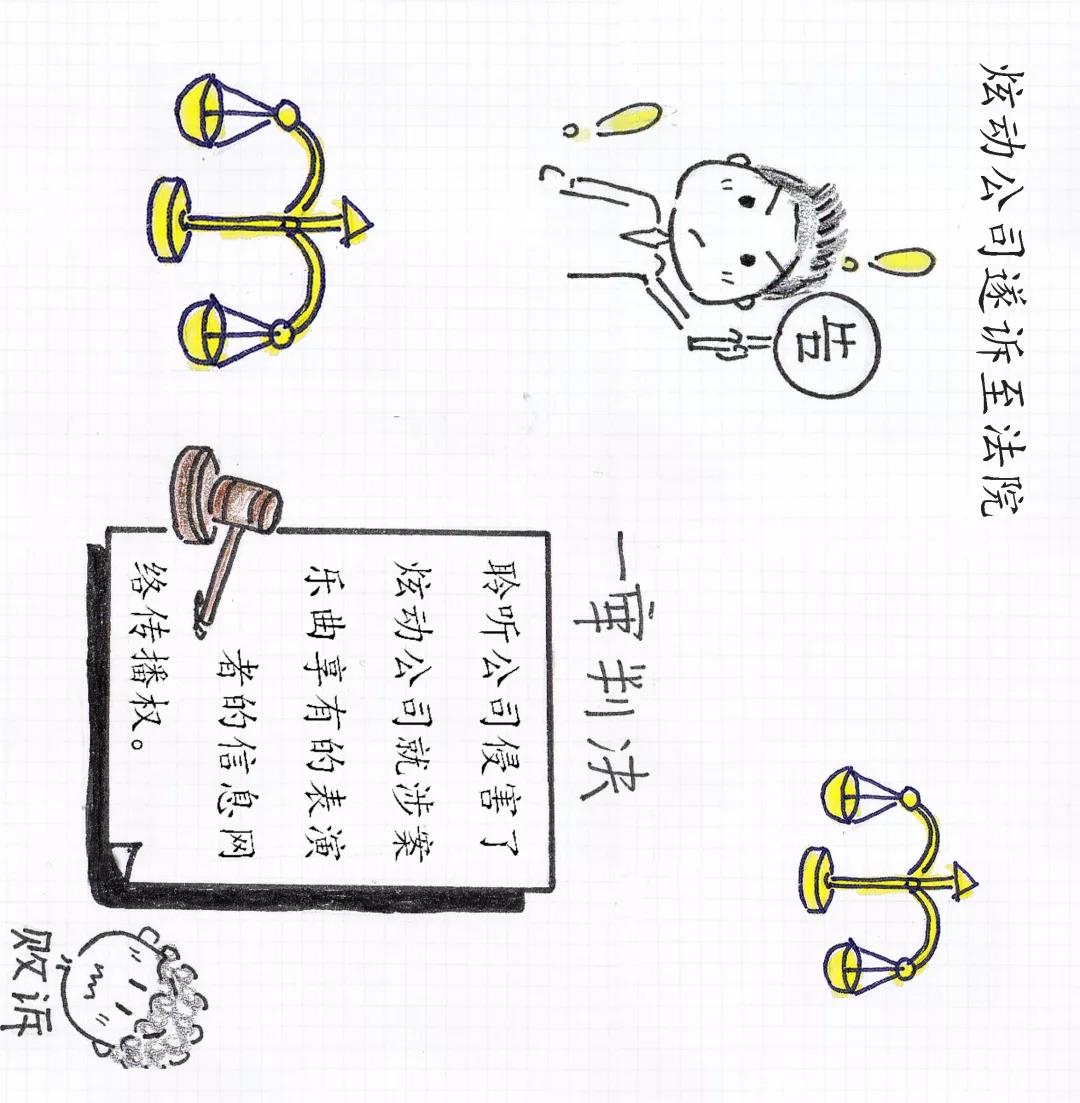 炫动公司遂诉至法院
告
一审判决
聆听公司侵害了
炫动公司就涉案
乐曲享有的表演
者的信息网
络传播权。
败诉